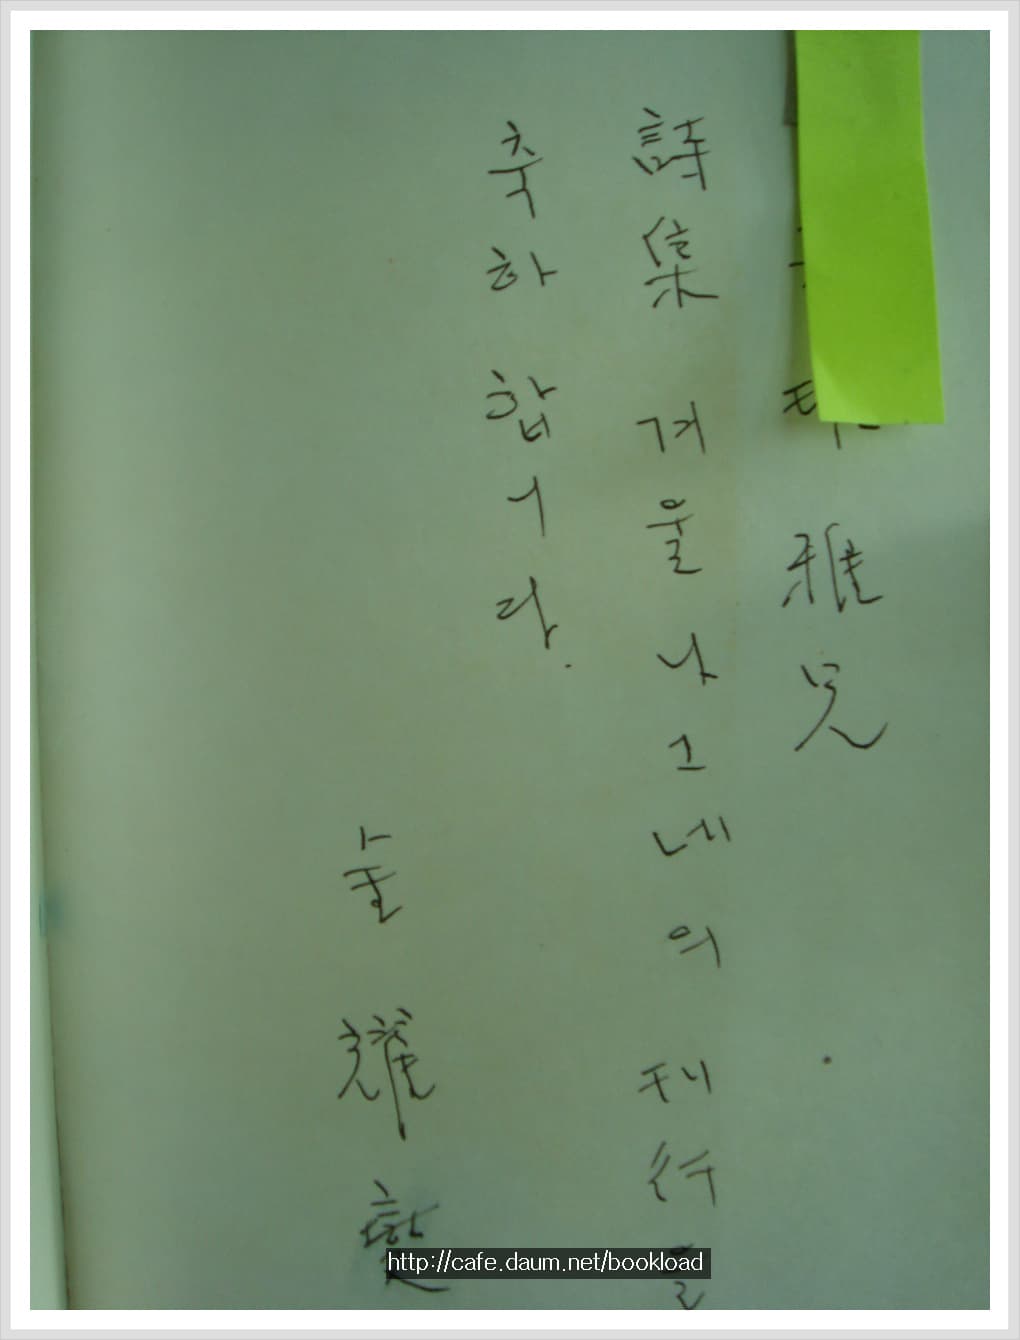 雅兄
詩集 겨울나그네의 刊行을
축하합니다.
耀
http://cafe.daum.net/bookload